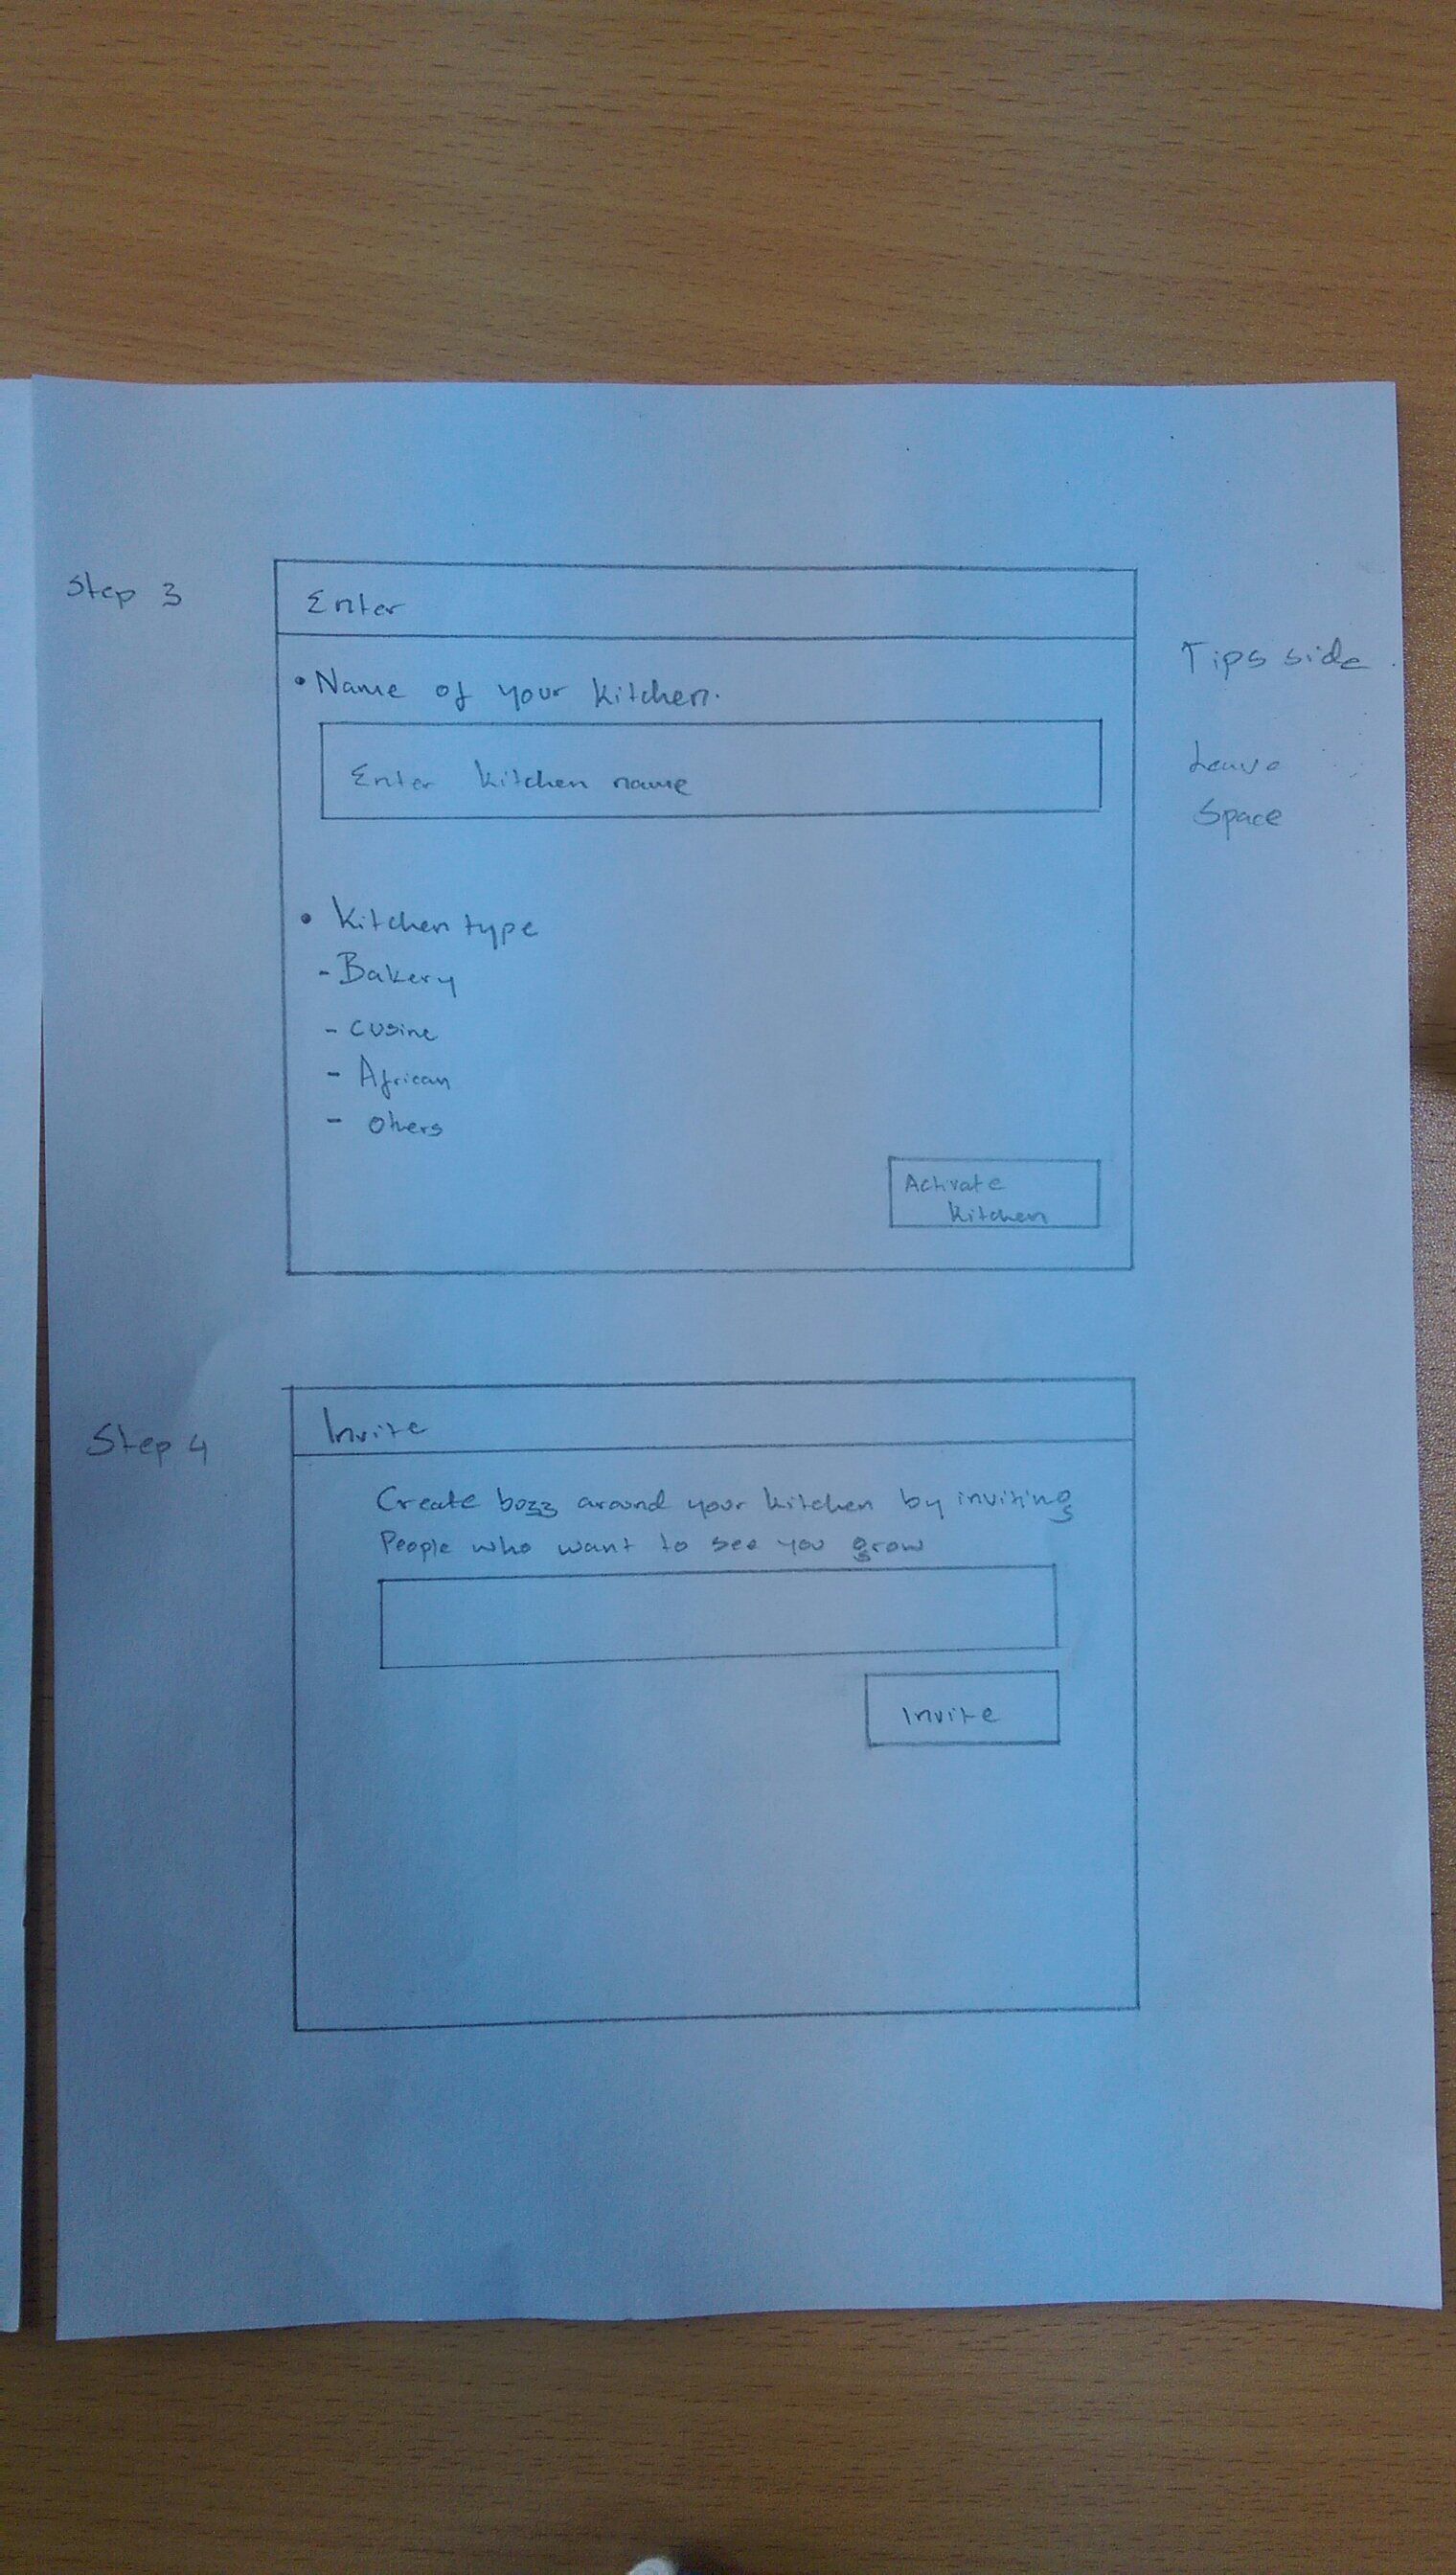 Step 3
Enter
• Name of your kitchen.
Enter kitchen name
• Kitchen type
- Bakery
- cusine
- African
- Others
Activate
Kitchen
Tips side
Leave
Space
Step 4
Invite
Create bozz around your kitchen by inviting
People who want to see you grow
Invite